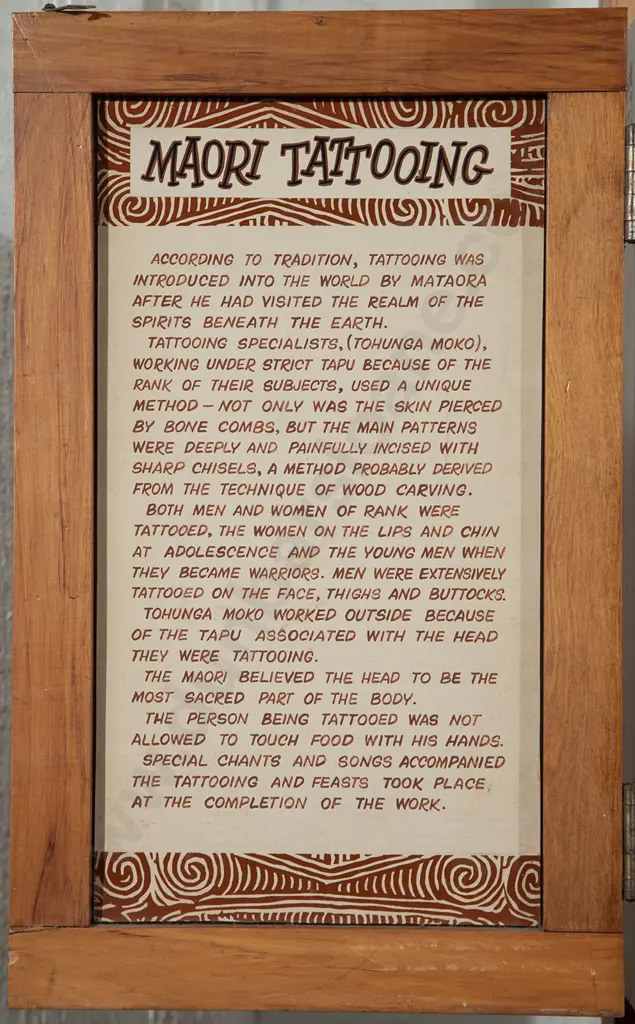 MAORI TATTOOING
ACCORDING TO TRADITION, TATTOOING WAS
INTRODUCED INTO THE WORLD BY MATAORA
AFTER HE HAD VISITED THE REALM OF THE
SPIRITS BENEATH THE EARTH.
TATTOOING SPECIALISTS, (TOHUNGA MOKO),
WORKING UNDER STRICT TAPU BECAUSE OF THE
RANK OF THEIR SUBJECTS, USED A UNIQUE
METHOD – NOT ONLY WAS THE SKIN PIERCED
BY BONE COMBS, BUT THE MAIN PATTERNS
WERE DEEPLY AND PAINFULLY INCISED WITH
SHARP CHISELS, A METHOD PROBABLY DERIVED
FROM THE TECHNIQUE OF WOOD CARVING.
BOTH MEN AND WOMEN OF RANK WERE
TATTOOED, THE WOMEN ON THE LIPS AND CHIN
AT ADOLESCENCE AND THE YOUNG MEN WHEN
THEY BECAME WARRIORS. MEN WERE EXTENSIVELY
TATTOOED ON THE FACE, THIGHS AND BUTTOCKS.
TOHUNGA MOKO WORKED OUTSIDE BECAUSE
OF THE TAPU ASSOCIATED WITH THE HEAD
THEY WERE TATTOOING.
THE MAORI BELIEVED THE HEAD TO BE THE
MOST SACRED PART OF THE BODY.
THE PERSON BEING TATTOOED WAS NOT
ALLOWED TO TOUCH FOOD WITH HIS HANDS.
SPECIAL CHANTS AND SONGS ACCOMPANIED
THE TATTOOING AND FEASTS TOOK PLACE
AT THE COMPLETION OF THE WORK.